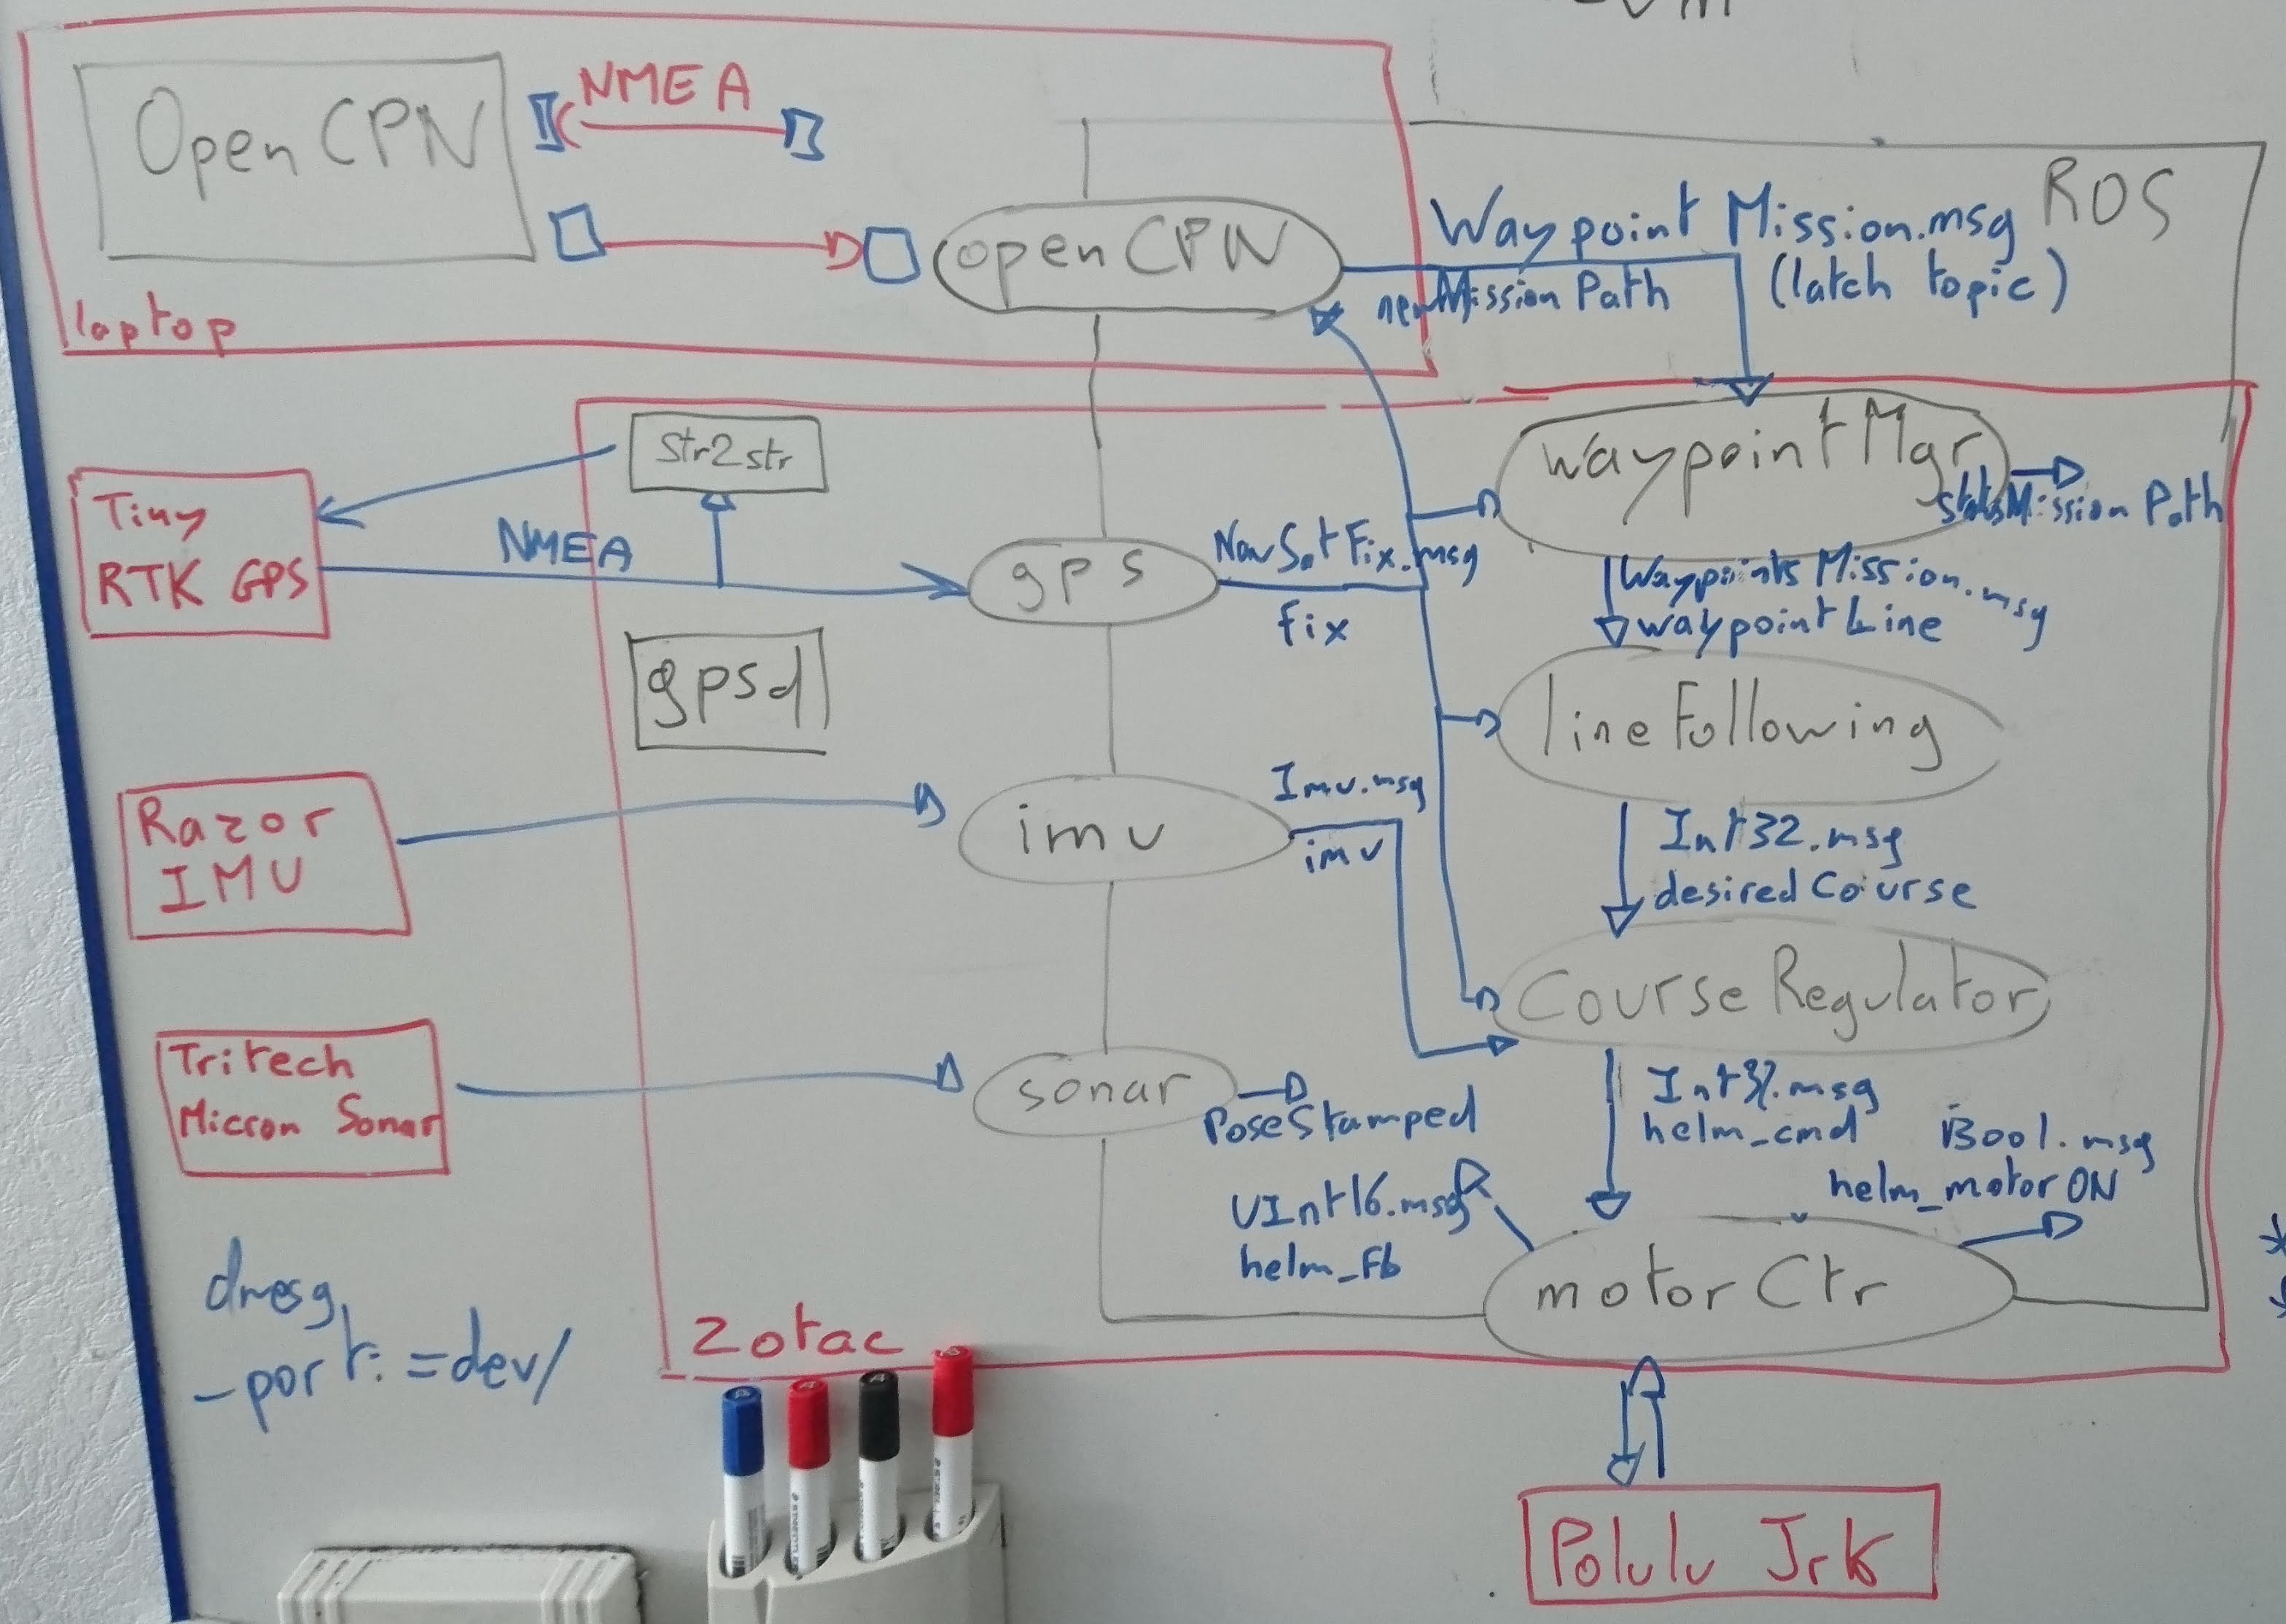 Open CPN
NMEA
laptop
openCPN
Waypoint Mission.msg
(latch topic)
newMission Path
ROS
Str2str
Tiny
RTK GPS
NMEA
gps
NavSatFix.msg
fix
gpsd
waypointMgr
Mission Path
Waypoints Mission.msg
waypoint Line
lineFollowing
Razor
IMU
imu
Imu.msg
imu
Int32.msg
desired Course
Course Regulator
Tritech
Micron Sonar
sonar
PoseStamped
Int32.msg
helm_cmd
Bool.msg
helm_motor ON
UInt16.msg
helm_Fb
motor Ctr
dmesg
_port:=dev/
Zotac
Polulu Jrk